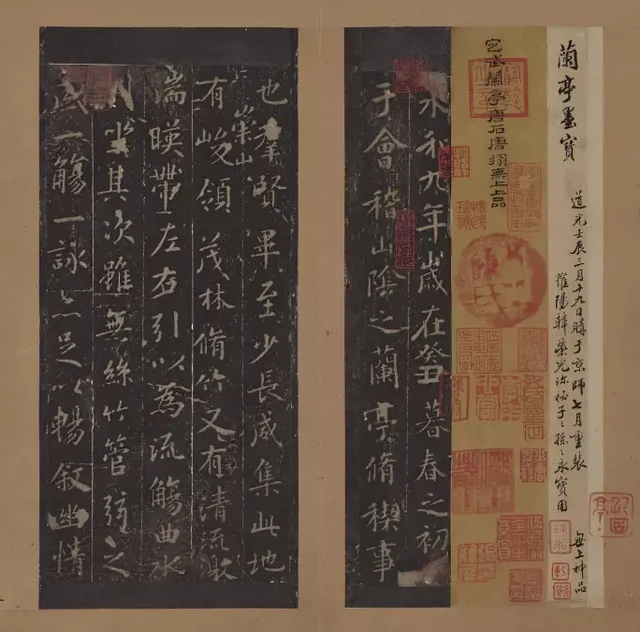 蘭亭墨寶
道光壬辰三月十九日購于京師七月重裝
羅陽韓榮光珎秘子〻孫〻永寶用
無上神品
定武蘭亭唐石唐搨無上上品
永和九年歲在癸丑暮春之初
于會稽山陰之蘭亭脩稧事
也羣賢畢至少長咸集此地
有崇山峻領茂林脩竹又有清流激
湍暎帶左右引以為流觴曲水
坐其次雖無絲竹管弦之
盛一觴一詠亦足以暢叙幽情